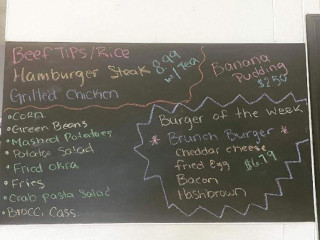 Beef Tips/Rice
Hamburger Steak
Grilled Chicken
8.99
w/ Tea
Banana
Pudding
$2.50
• Corn
• Green Beans
• Mashed Potatoes
• Potato Salad
• Fried Okra
• Fries
• Crab Pasta Salad
• Brocc. Cass.
Burger of the Week
* Brunch Burger *
cheddar cheese
fried Egg
$6.79
Bacon
Hashbrown